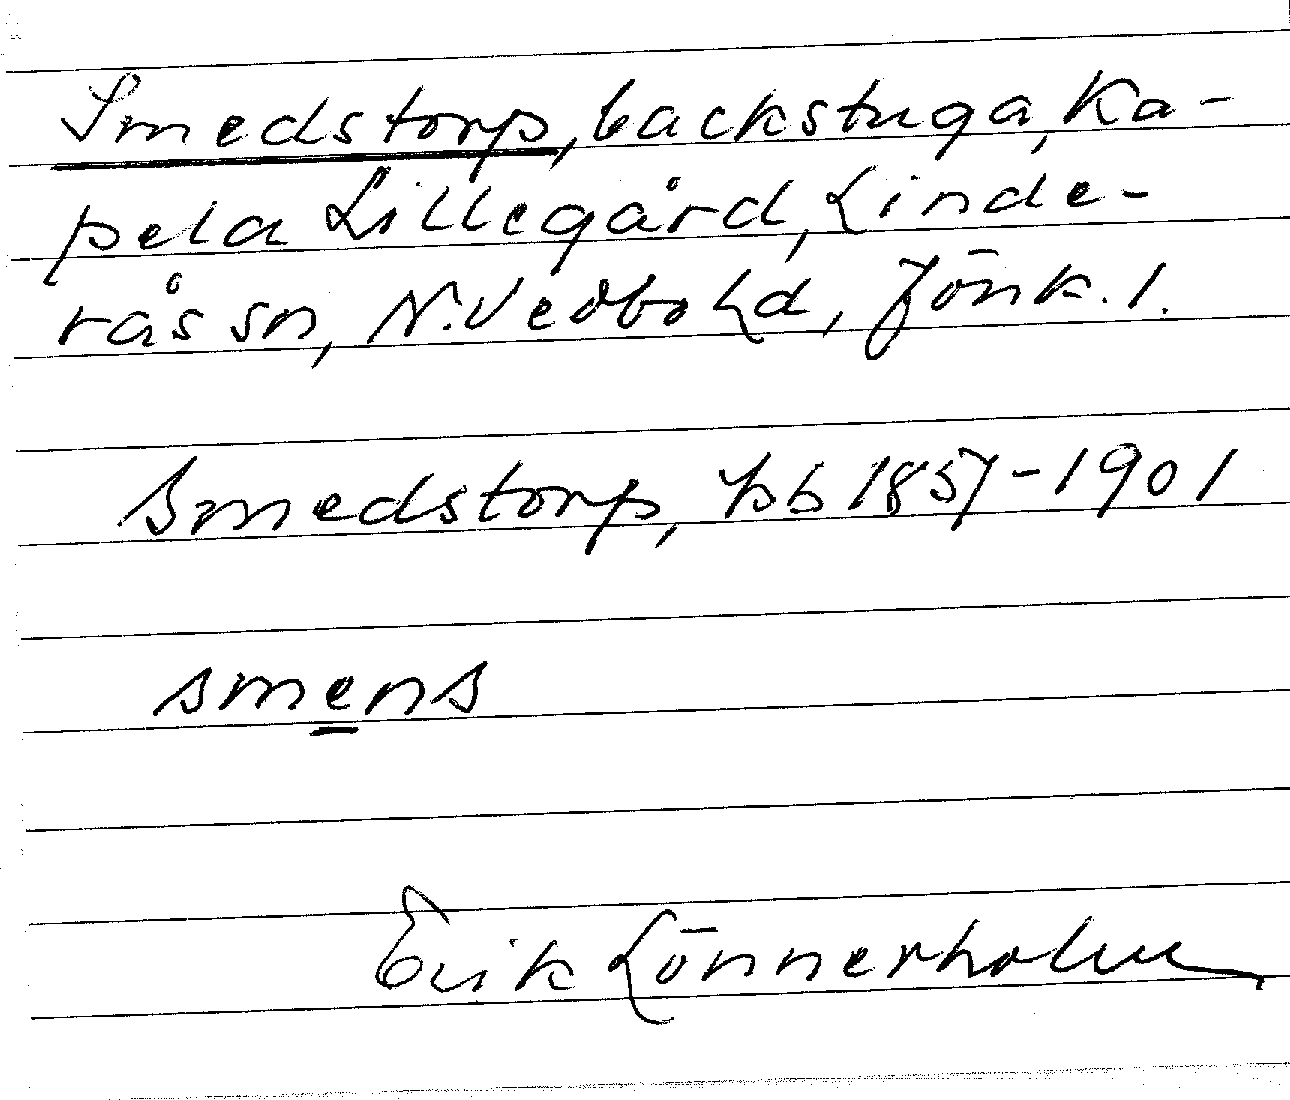 Smedstorp, backstuga, Ka-
pela Lillegård, Linde-
rås sn, N. Vedbo hd, Jönk. l.
Smedstorp, kb 1857-1901
smens
Erik Lönnerholm